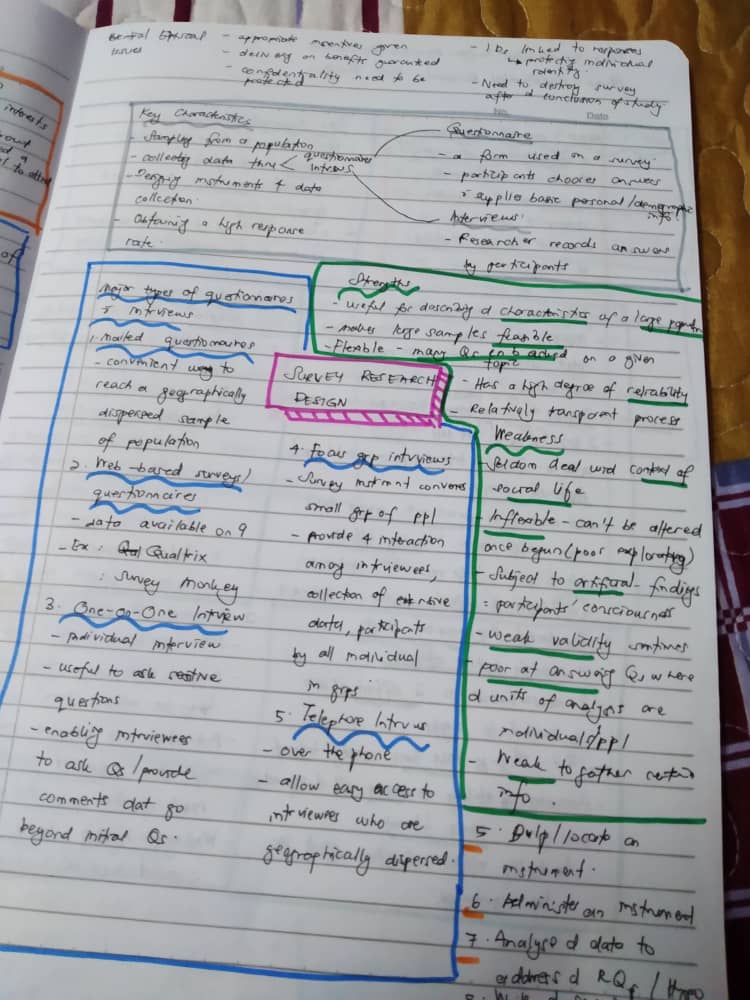 Ethical - appropriate incentives given
issues - delivery on benefits guaranteed
- confidentiality need to be
protected
- IDs linked to responses
↳ protecting individual
identity.
- Need to destroy survey
after d conclusion of study
No.
Date
Key Characteristics
- Sampling from a population
- collecting data thru < questionnaires
intrviews
- Designing instruments 4 data
collection.
- Obtaining a high response
rate.
Questionnaire
- a form used on a survey.
- participants chooses answers
& supplies basic personal/demographic
info.
Interviews.
- Researcher records answers
by participants
major types of questionnaires
& intrviews
1. mailed questionnaires
- convenient way to
reach a geographically
dispersed sample
of population
2. Web-based surveys/
questionnaires
- Data available on 9
- Ex: Qualtrix
: Survey Monkey
3. One-on-One Intrview
- individual interview
- useful to ask sensitive
questions
- enabling intrviewees
to ask Qs / provide
comments dat go
beyond initial Qs.
SURVEY RESEARCH
DESIGN
4. focus grp intrviews
- Survey instrmnt convenes
small grp of ppl
- provide 4 interaction
among intrviewees,
collection of extensive
data, participants
by all individual
in grps
5. Telephone Intrvws
- over the phone
- allow easy access to
intrviewees who are
geographically dispersed.
Strengths
- useful for describing d characteristics of a large
- makes large samples feasible
- Flexible - many Qs asked on a given
topic
- Has a high degree of reliability
- Relatively transparent process
Weakness
- Seldom deal with context of
social life
- Inflexible - can't be altered
once begun (poor exploration)
- Subject to artificial findings
: participants' consciousness
- weak validity
- poor at answering Qs where
d units of analysis are
individual/ppl
- Weak to gather certain
info.
5. Dvlp/locate an
instrument.
6. Administer an instrument
7. Analyse d data to
address d RQs /
8.
interests
a
to attend
of